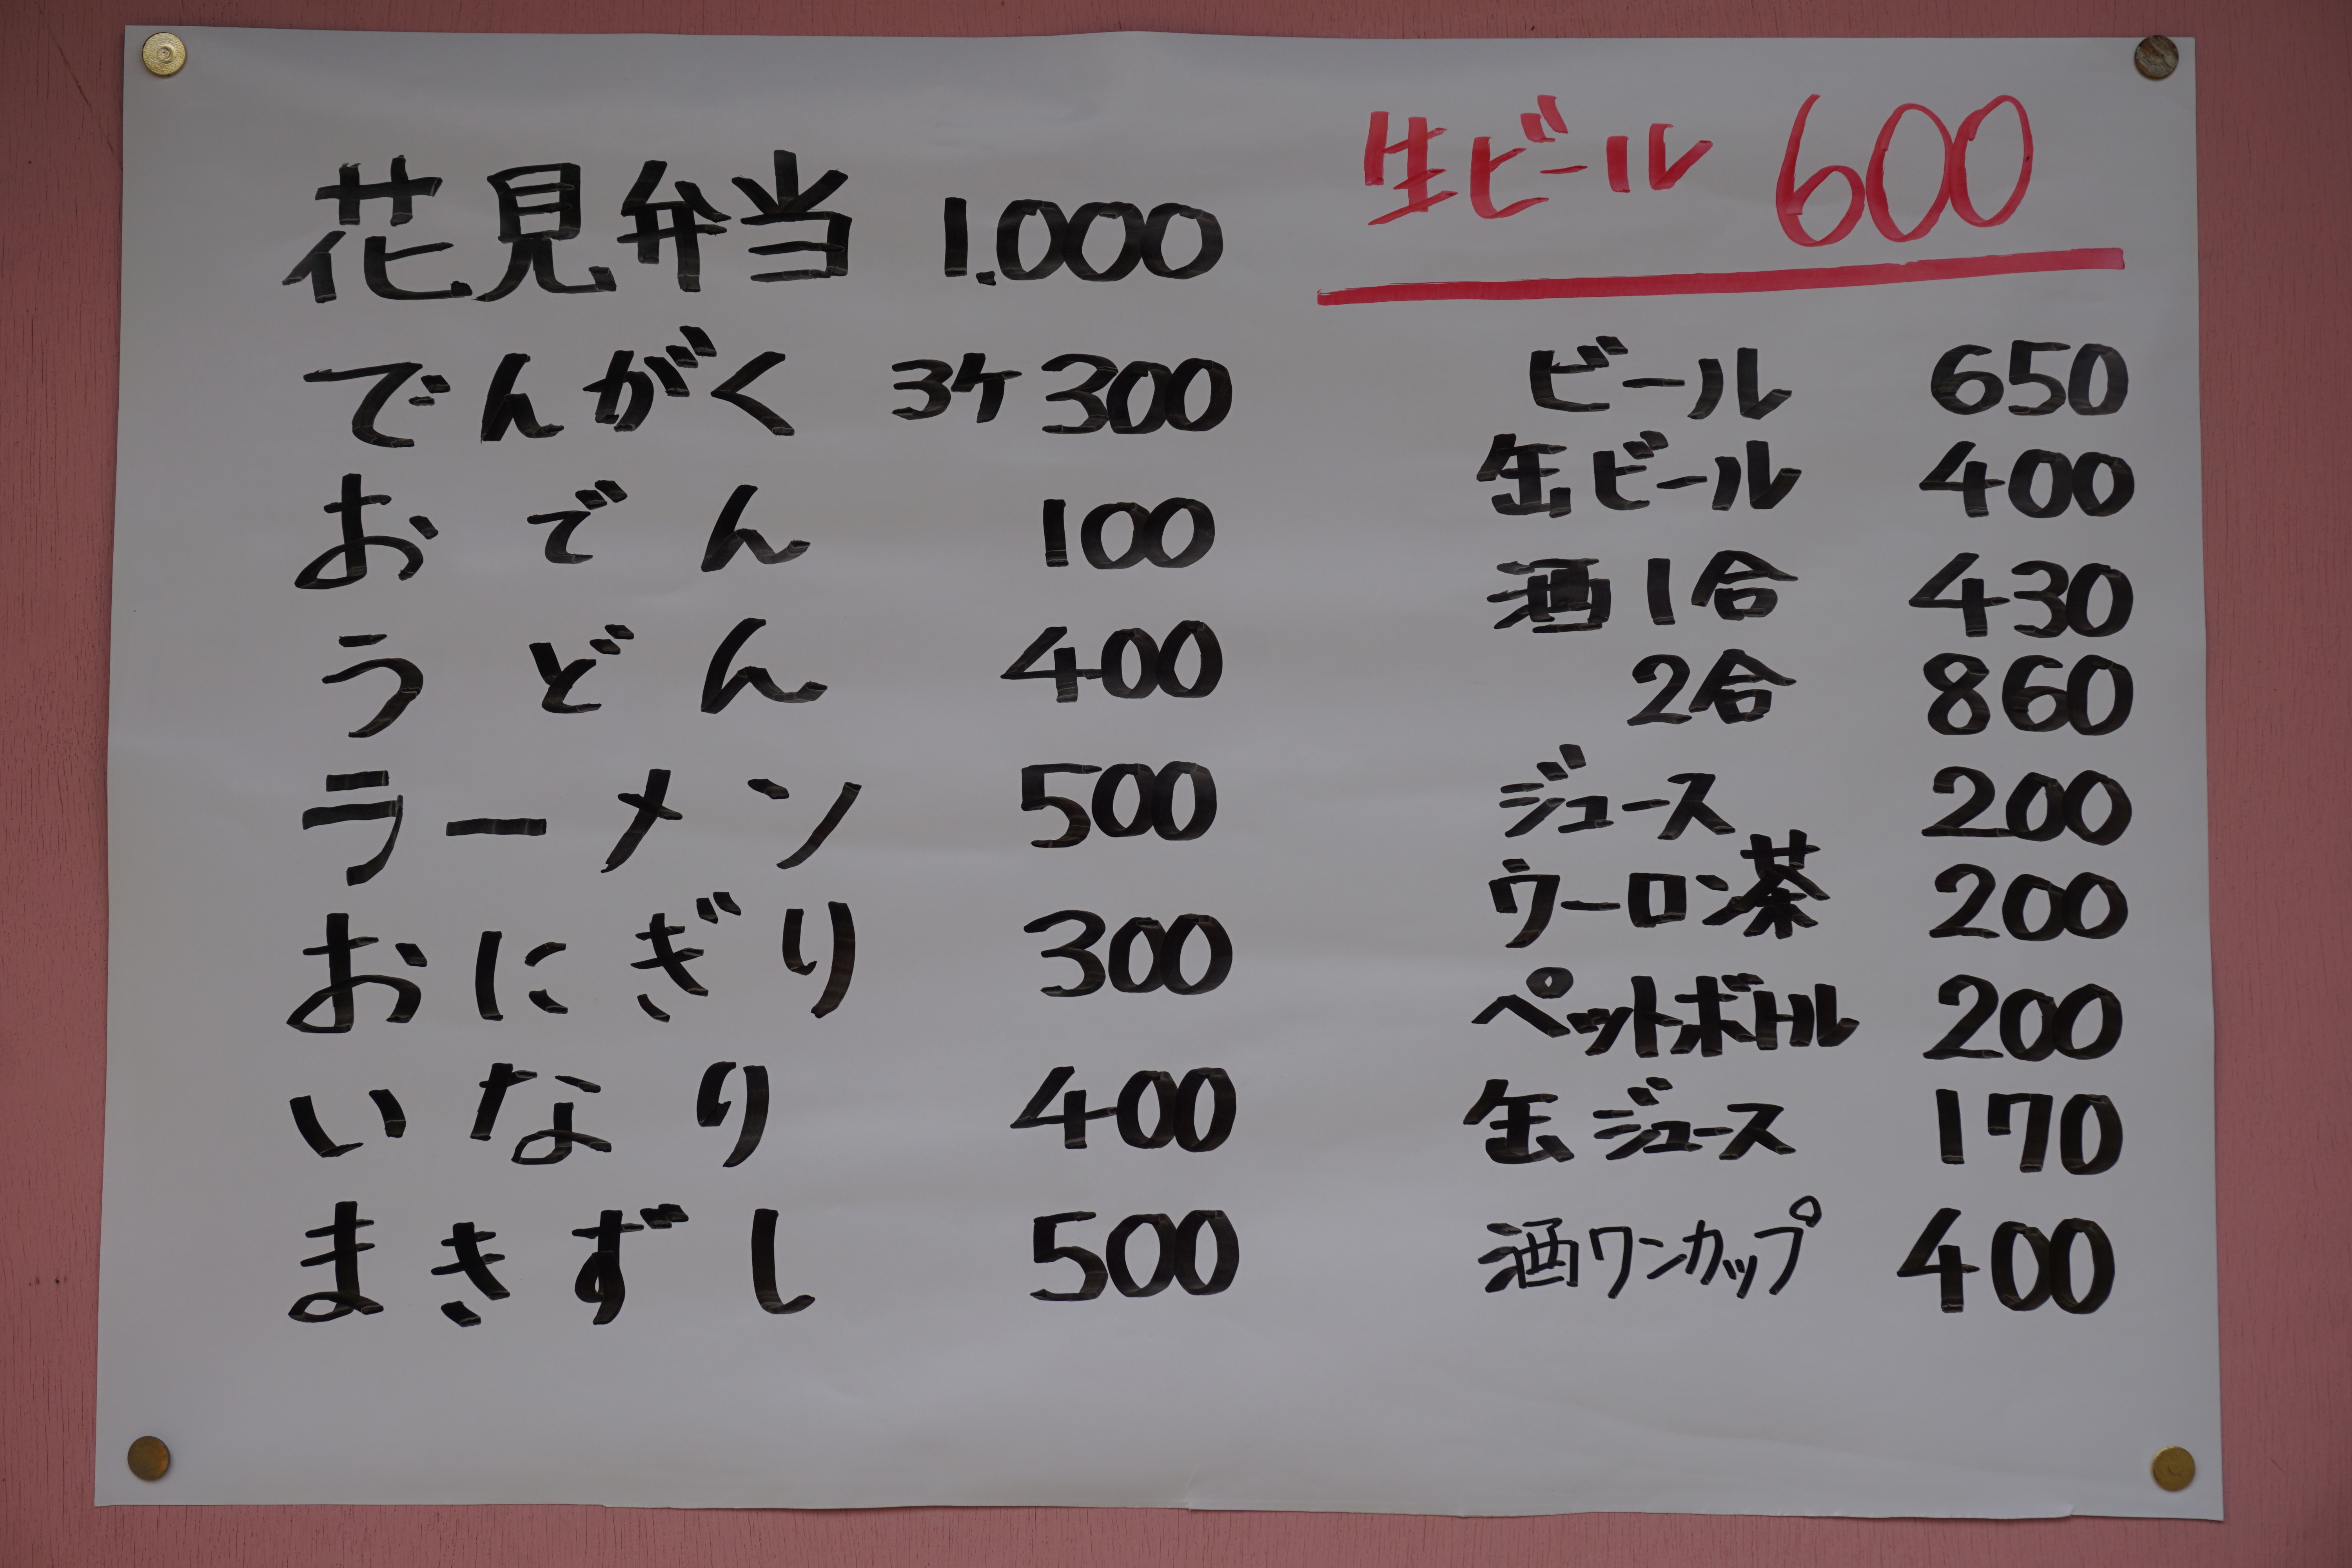 花見弁当 1.000
でんがく 3ケ 300
おでん 100
うどん 400
ラーメン 500
おにぎり 300
いなり 400
まきずし 500
生ビール 600
ビール 650
缶ビール 400
酒1合 430
2合 860
ジュース 200
ウーロン茶 200
ペットボトル 200
缶ジュース 170
酒ワンカップ 400